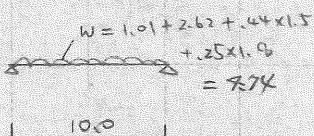 W = 1.01 + 2.62 + .44x1.5
+ .25x1.8
= 4.74
10.0